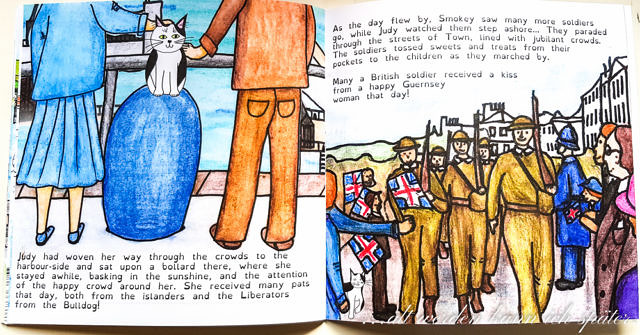 Judy had woven her way through the crowds to the
harbour-side and sat upon a bollard there, where she
stayed awhile, basking in the sunshine, and the attention
of the happy crowd around her. She received many pats
that day, both from the islanders and the Liberators
from the Bulldog!
As the day flew by, Smokey saw many more soldiers
go, while Judy watched them step ashore... They paraded
through the streets of Town, lined with jubilant crowds.
The soldiers tossed sweets and treats from their
pockets to the children as they marched by.
Many a British soldier received a kiss
from a happy Guernsey
woman that day!
... alt werden kann ich später...